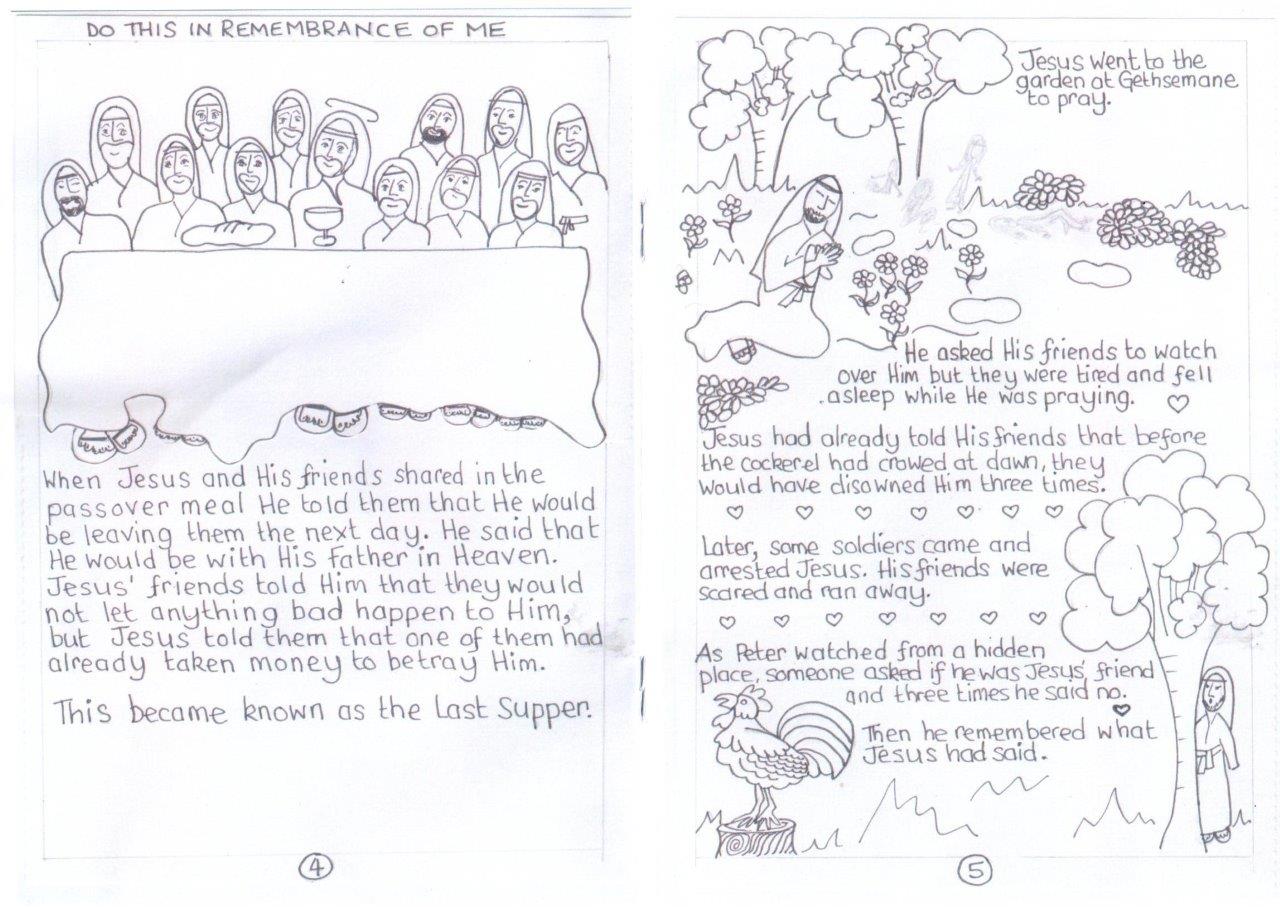 DO THIS IN REMEMBRANCE OF ME
When Jesus and His friends shared in the
passover meal He told them that He would
be leaving them the next day. He said that
He would be with His Father in Heaven.
Jesus' friends told Him that they would
not let anything bad happen to Him,
but Jesus told them that one of them had
already taken money to betray Him.
This became known as the Last Supper.
4
Jesus went to the
garden at Gethsemane
to pray.
He asked His friends to watch
over Him but they were tired and fell
asleep while He was praying.
Jesus had already told His friends that before
the cockerel had crowed at dawn, they
would have disowned Him three times.
Later, some soldiers came and
arrested Jesus. His friends were
scared and ran away.
As Peter watched from a hidden
place, someone asked if he was Jesus' friend
and three times he said no.
Then he remembered what
Jesus had said.
5